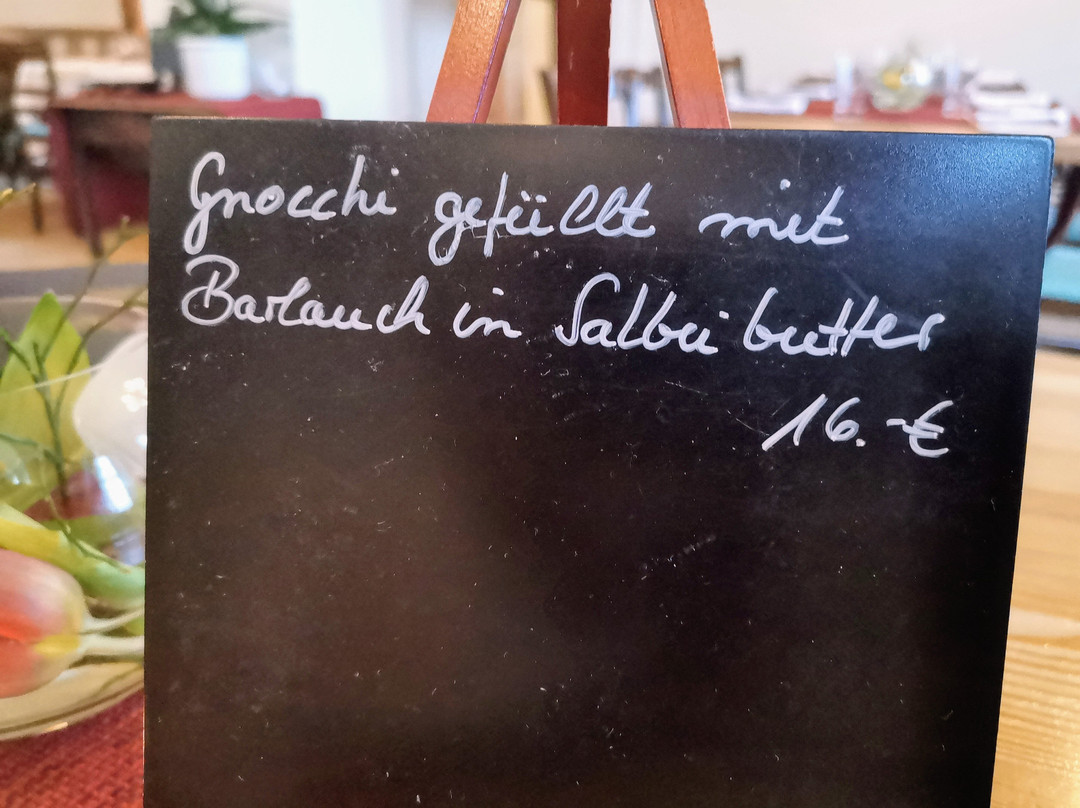 Gnocchi gefüllt mit
Barlauch in Salbei butter
16.-€